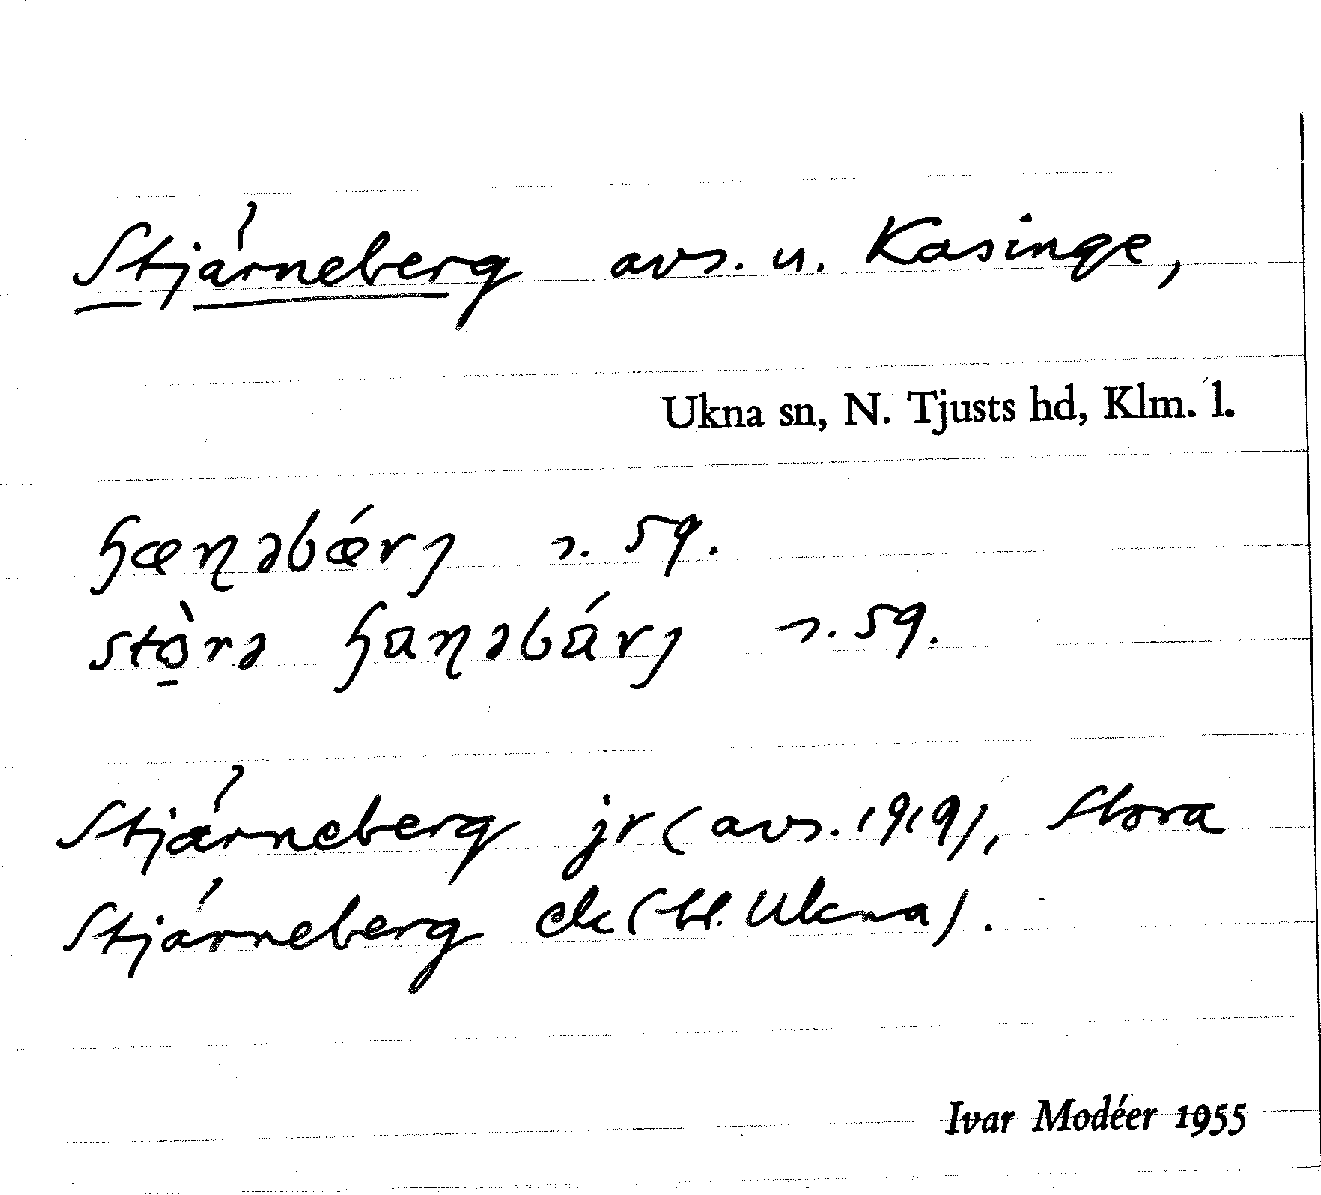 Stjärneberg avs. u. Kasinge,
Ukna sn, N. Tjusts hd, Klm. l.
ɧæɳəbǽrȷ s. 59.
stò̠rə ɧaɳəbárȷ s. 59.
Stjärneberg jr (avs. 1919), Stora
Stjärneberg ek (bl. Ukna).
Ivar Modéer 1955